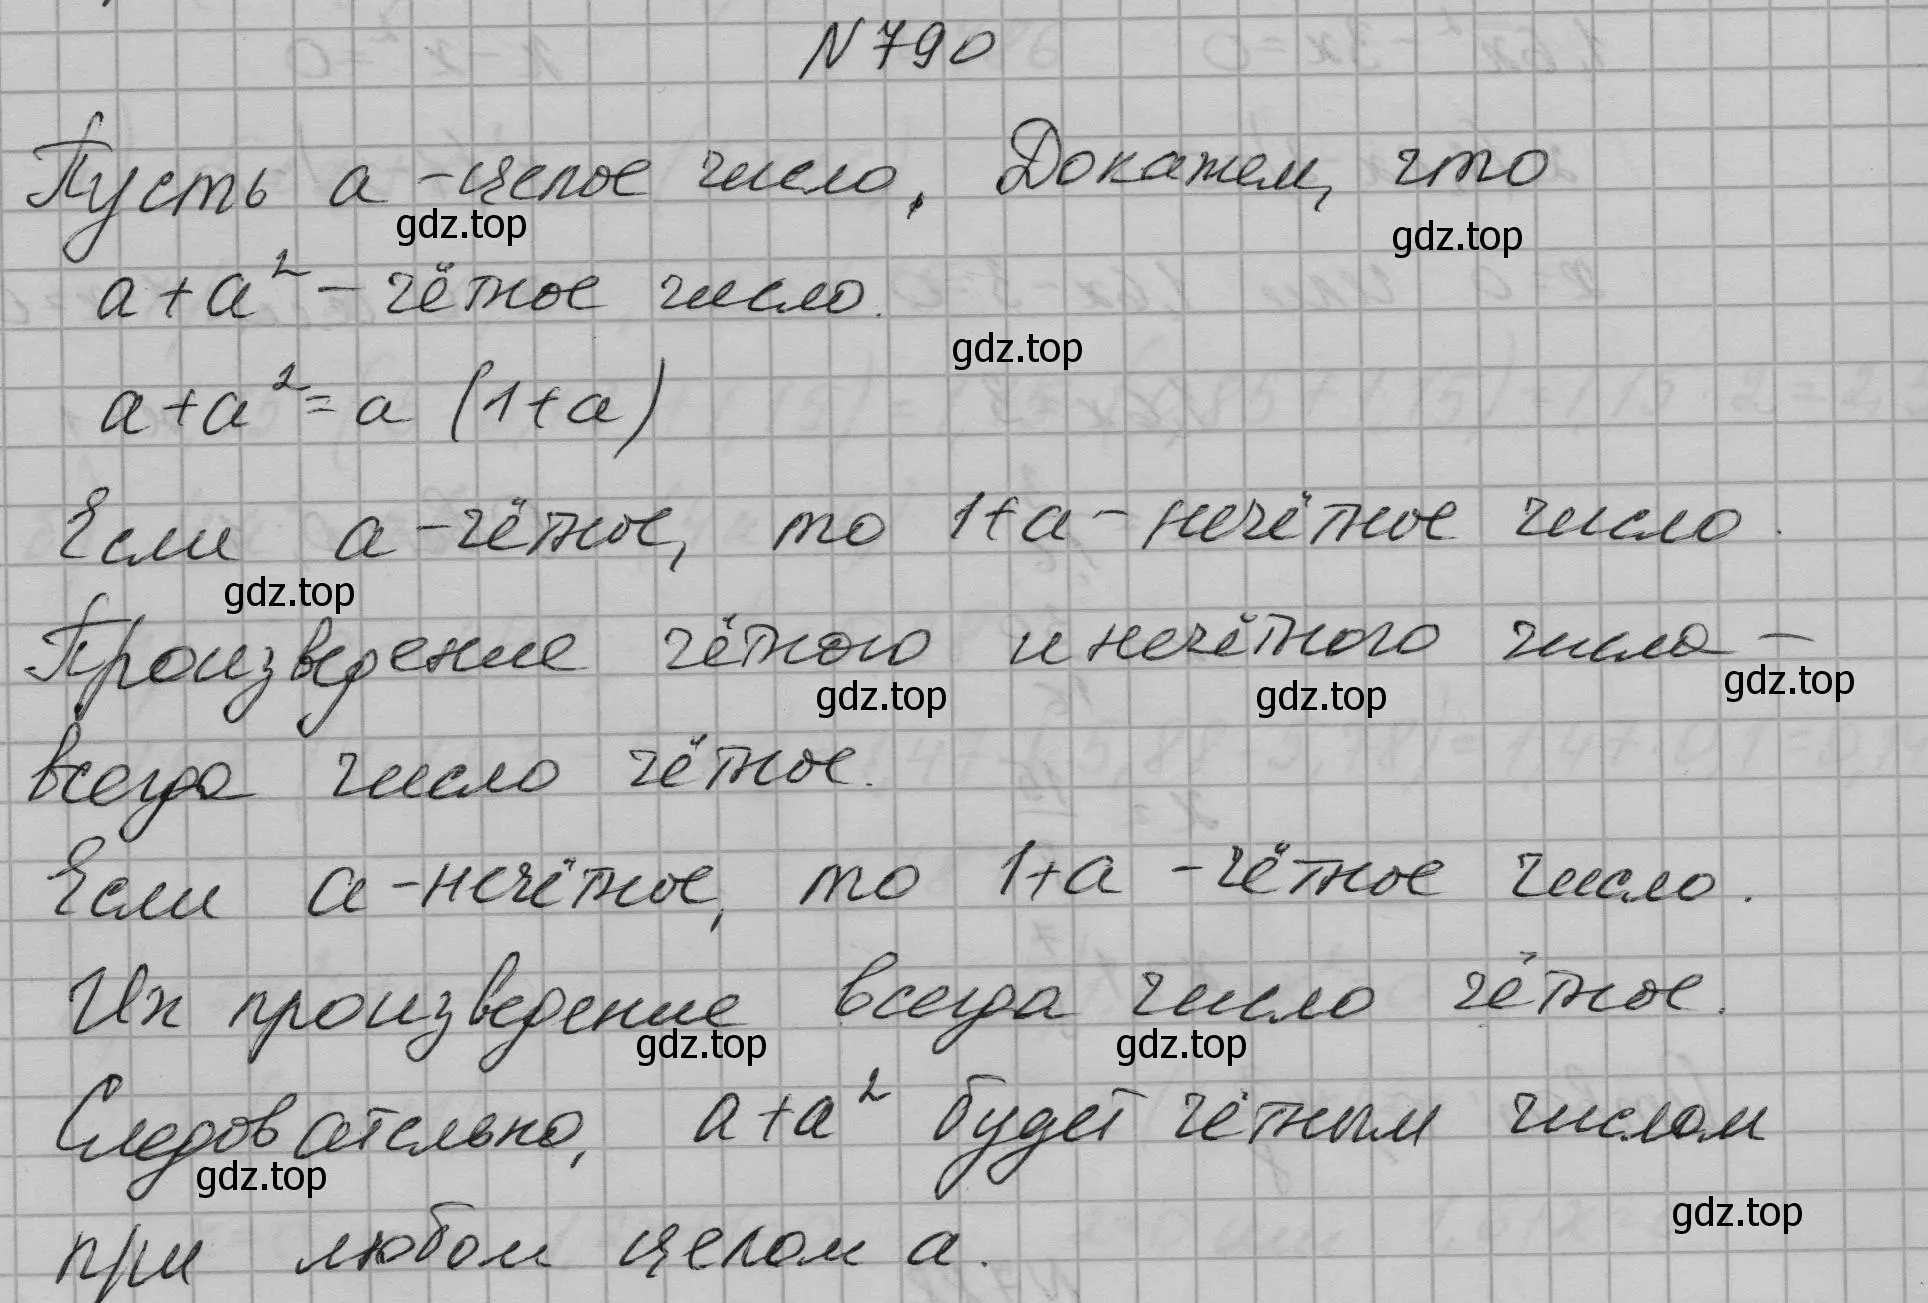 N 790
Пусть а - целое число, Докажем, что
gdz.top gdz.top
а + а² - чётное число.
gdz.top
а + а² = а (1 + а)
Если а - чётное, то 1 + а - нечётное число.
gdz.top
Произведение чётного и нечётного числа -
gdz.top gdz.top gdz.top
всегда число чётное.
Если а - нечётное, то 1 + а - чётное число.
Их произведение всегда число чётное.
gdz.top gdz.top
Следовательно, а + а² будет чётным числом
gdz.top gdz.top
при любом целом а.